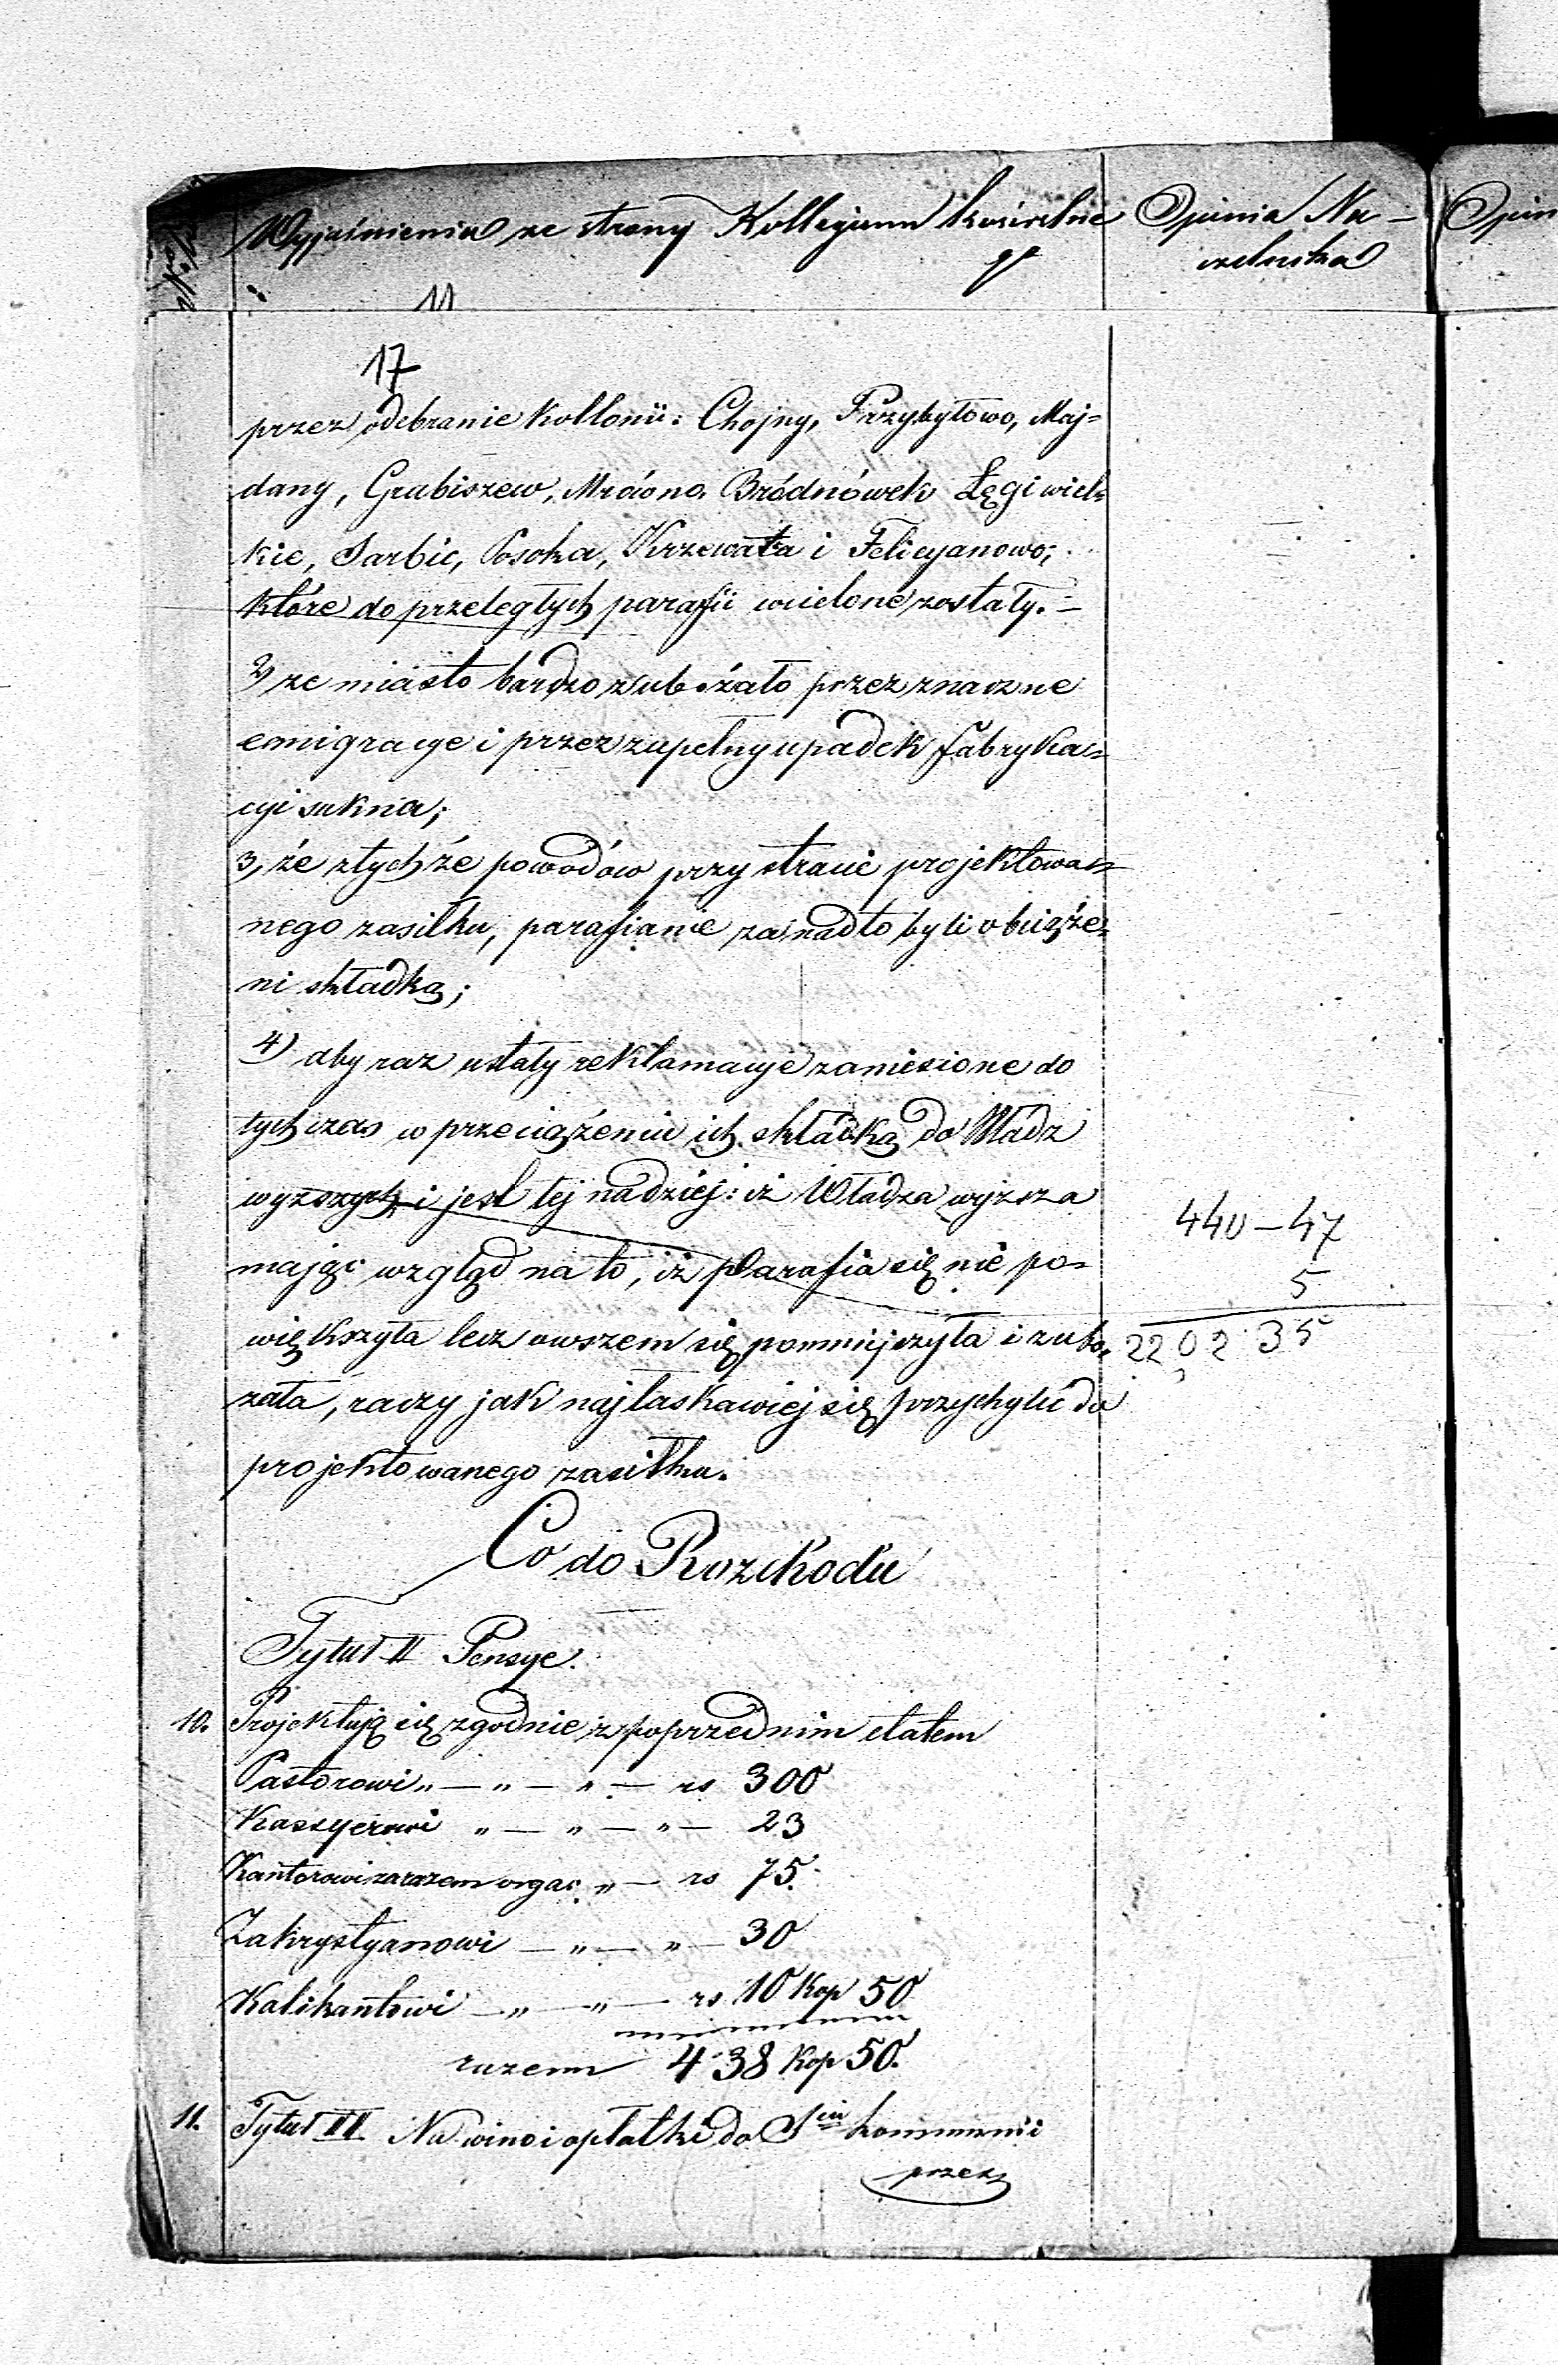 Wyjaśnienia ze strony Kollegium kościelne
go
Opinia Na-
czelnika
Opin
11
17
przez odebranie kollonii: Chojny, Przybyłowo, Maj=
dany, Grabiszew, Mrówno, Bródnówek Łęgi wiel=
kie, Sarbic, Osoka, Krzewata i Felicyanowo;
które do przeległych parafii wcielone zostały. —
2) ze miasto bardzo zubożało przez znaczne
emigracye i przez zupełny upadek fabryka=
cyi sukna;
3, że z tychże powodów przy stracie projektowa=
nego zasiłku, parafianie zanadto byli obciąże=
ni składką;
4) aby raz ustały reklamacye zaniesione do
tychczas w przeciążeniu ich składką do Władz
wyższych i jest tej nadziej: iż Władza wyższa
mając wzgląd na to, iż parafia się nie po=
większyła lecz owszem się pomniejszyła i zubo=
żała, raczy jak najłaskawiej się przychylić do
projektowanego zasiłku.
440-47
5
2202 35
Co do Rozchodu
Tytuł II Pensye.
10. Projektują się zgodnie z poprzednim etatem
Pastorowi „ — „ — „ — rs 300
Kassyerowi „ — „ — „ — 23
Kantorowi zarazem orgac. „ — rs 75.
Zakrystyanowi — „ — „ — 30
Kalikantowi — „ — „ — rs 10 Kop 50
razem 438 Kop 50.
11. Tytuł III Na wino i opłatki do S komunii
przez